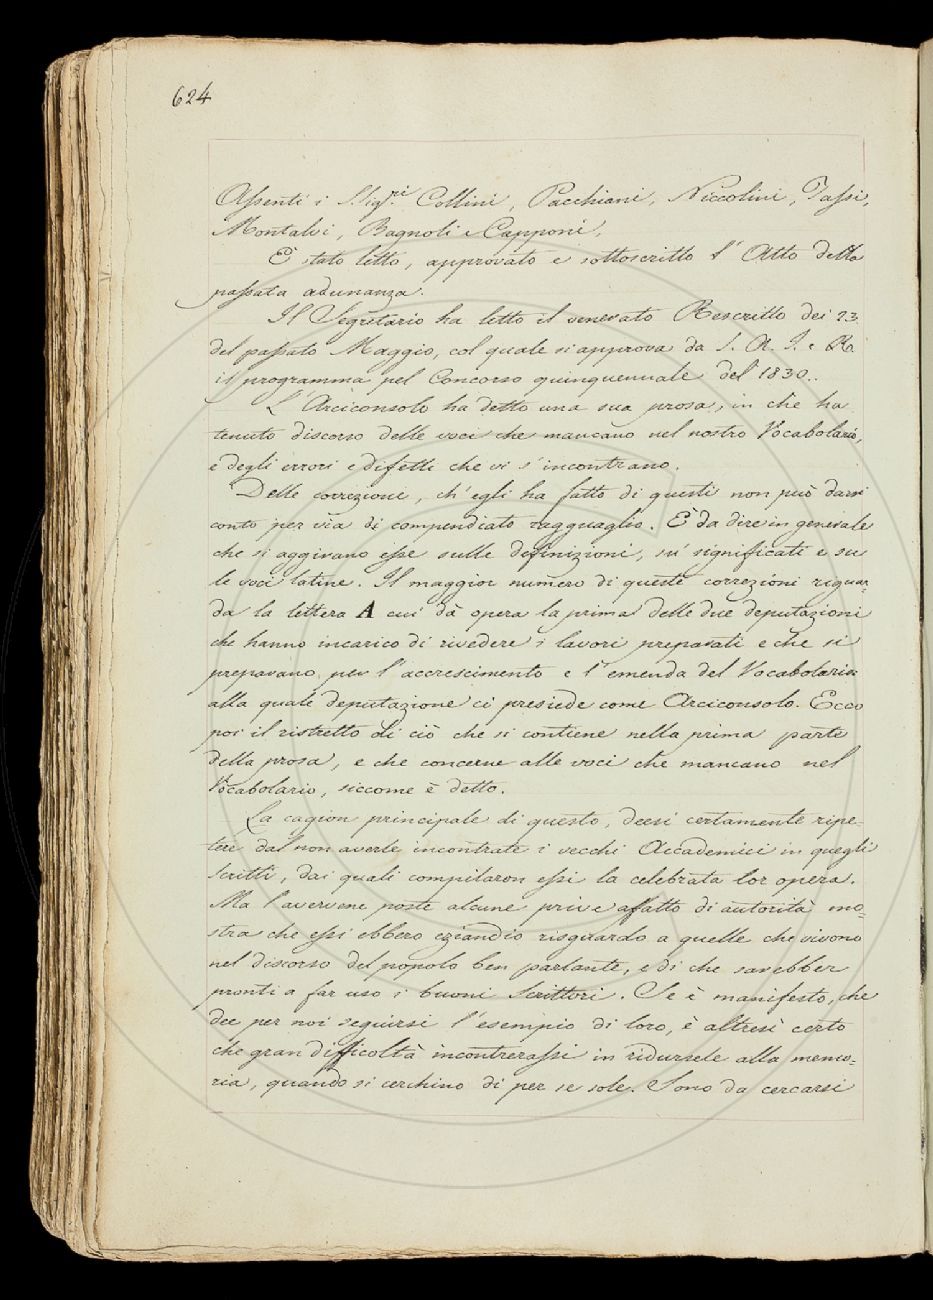 624
Assenti i S.Sig.ri Collini, Pacchiani, Niccolini, Tassi,
Montalvi, Bagnoli e Capponi.
È stato letto, approvato e sottoscritto l'Atto della
passata adunanza.
Il Segretario ha letto il venerato Rescritto dei 23
del passato Maggio, col quale si approva da S. A. I. e R.
il programma pel Concorso quinquennale del 1830.
L'Arciconsolo ha detto una sua prosa, in che ha
tenuto discorso delle voci che mancano nel nostro Vocabolario,
e degli errori e difetti che vi s'incontrano.
Delle correzioni, ch'egli ha fatto di questi non può darsi
conto per via di compendiato ragguaglio. È da dire in generale
che si aggirano esse sulle definizioni, su' significati e su
le voci latine. Il maggior numero di queste correzioni riguar-
da la lettera A cui dà opera la prima delle due deputazioni
che hanno incarico di rivedere i lavori preparati e che si
preparano per l'accrescimento e l'emenda del Vocabolario
alla quale deputazione ci presiede come Arciconsolo. Ecco
poi il ristretto di ciò che si contiene nella prima parte
della prosa, e che concerne alle voci che mancano nel
Vocabolario, siccome è detto.
La cagion principale di questo, deesi certamente ripe-
tere dal non averle incontrate i vecchi Accademici in quegli
scritti, dai quali compilaron essi la celebrata lor opera.
Ma l'avervene poste alcune prive affatto di autorità mo-
stra che essi ebbero eziandio risguardo a quelle che vivono
nel discorso del popolo ben parlante, e di che sarebber
pronti a far uso i buoni Scrittori. Se è manifesto, che
dee per noi seguirsi l'esempio di loro, è altresì certo
che gran difficoltà incontrerassi in ridursele alla memo-
ria, quando si cerchino di per se sole. Sono da cercarsi